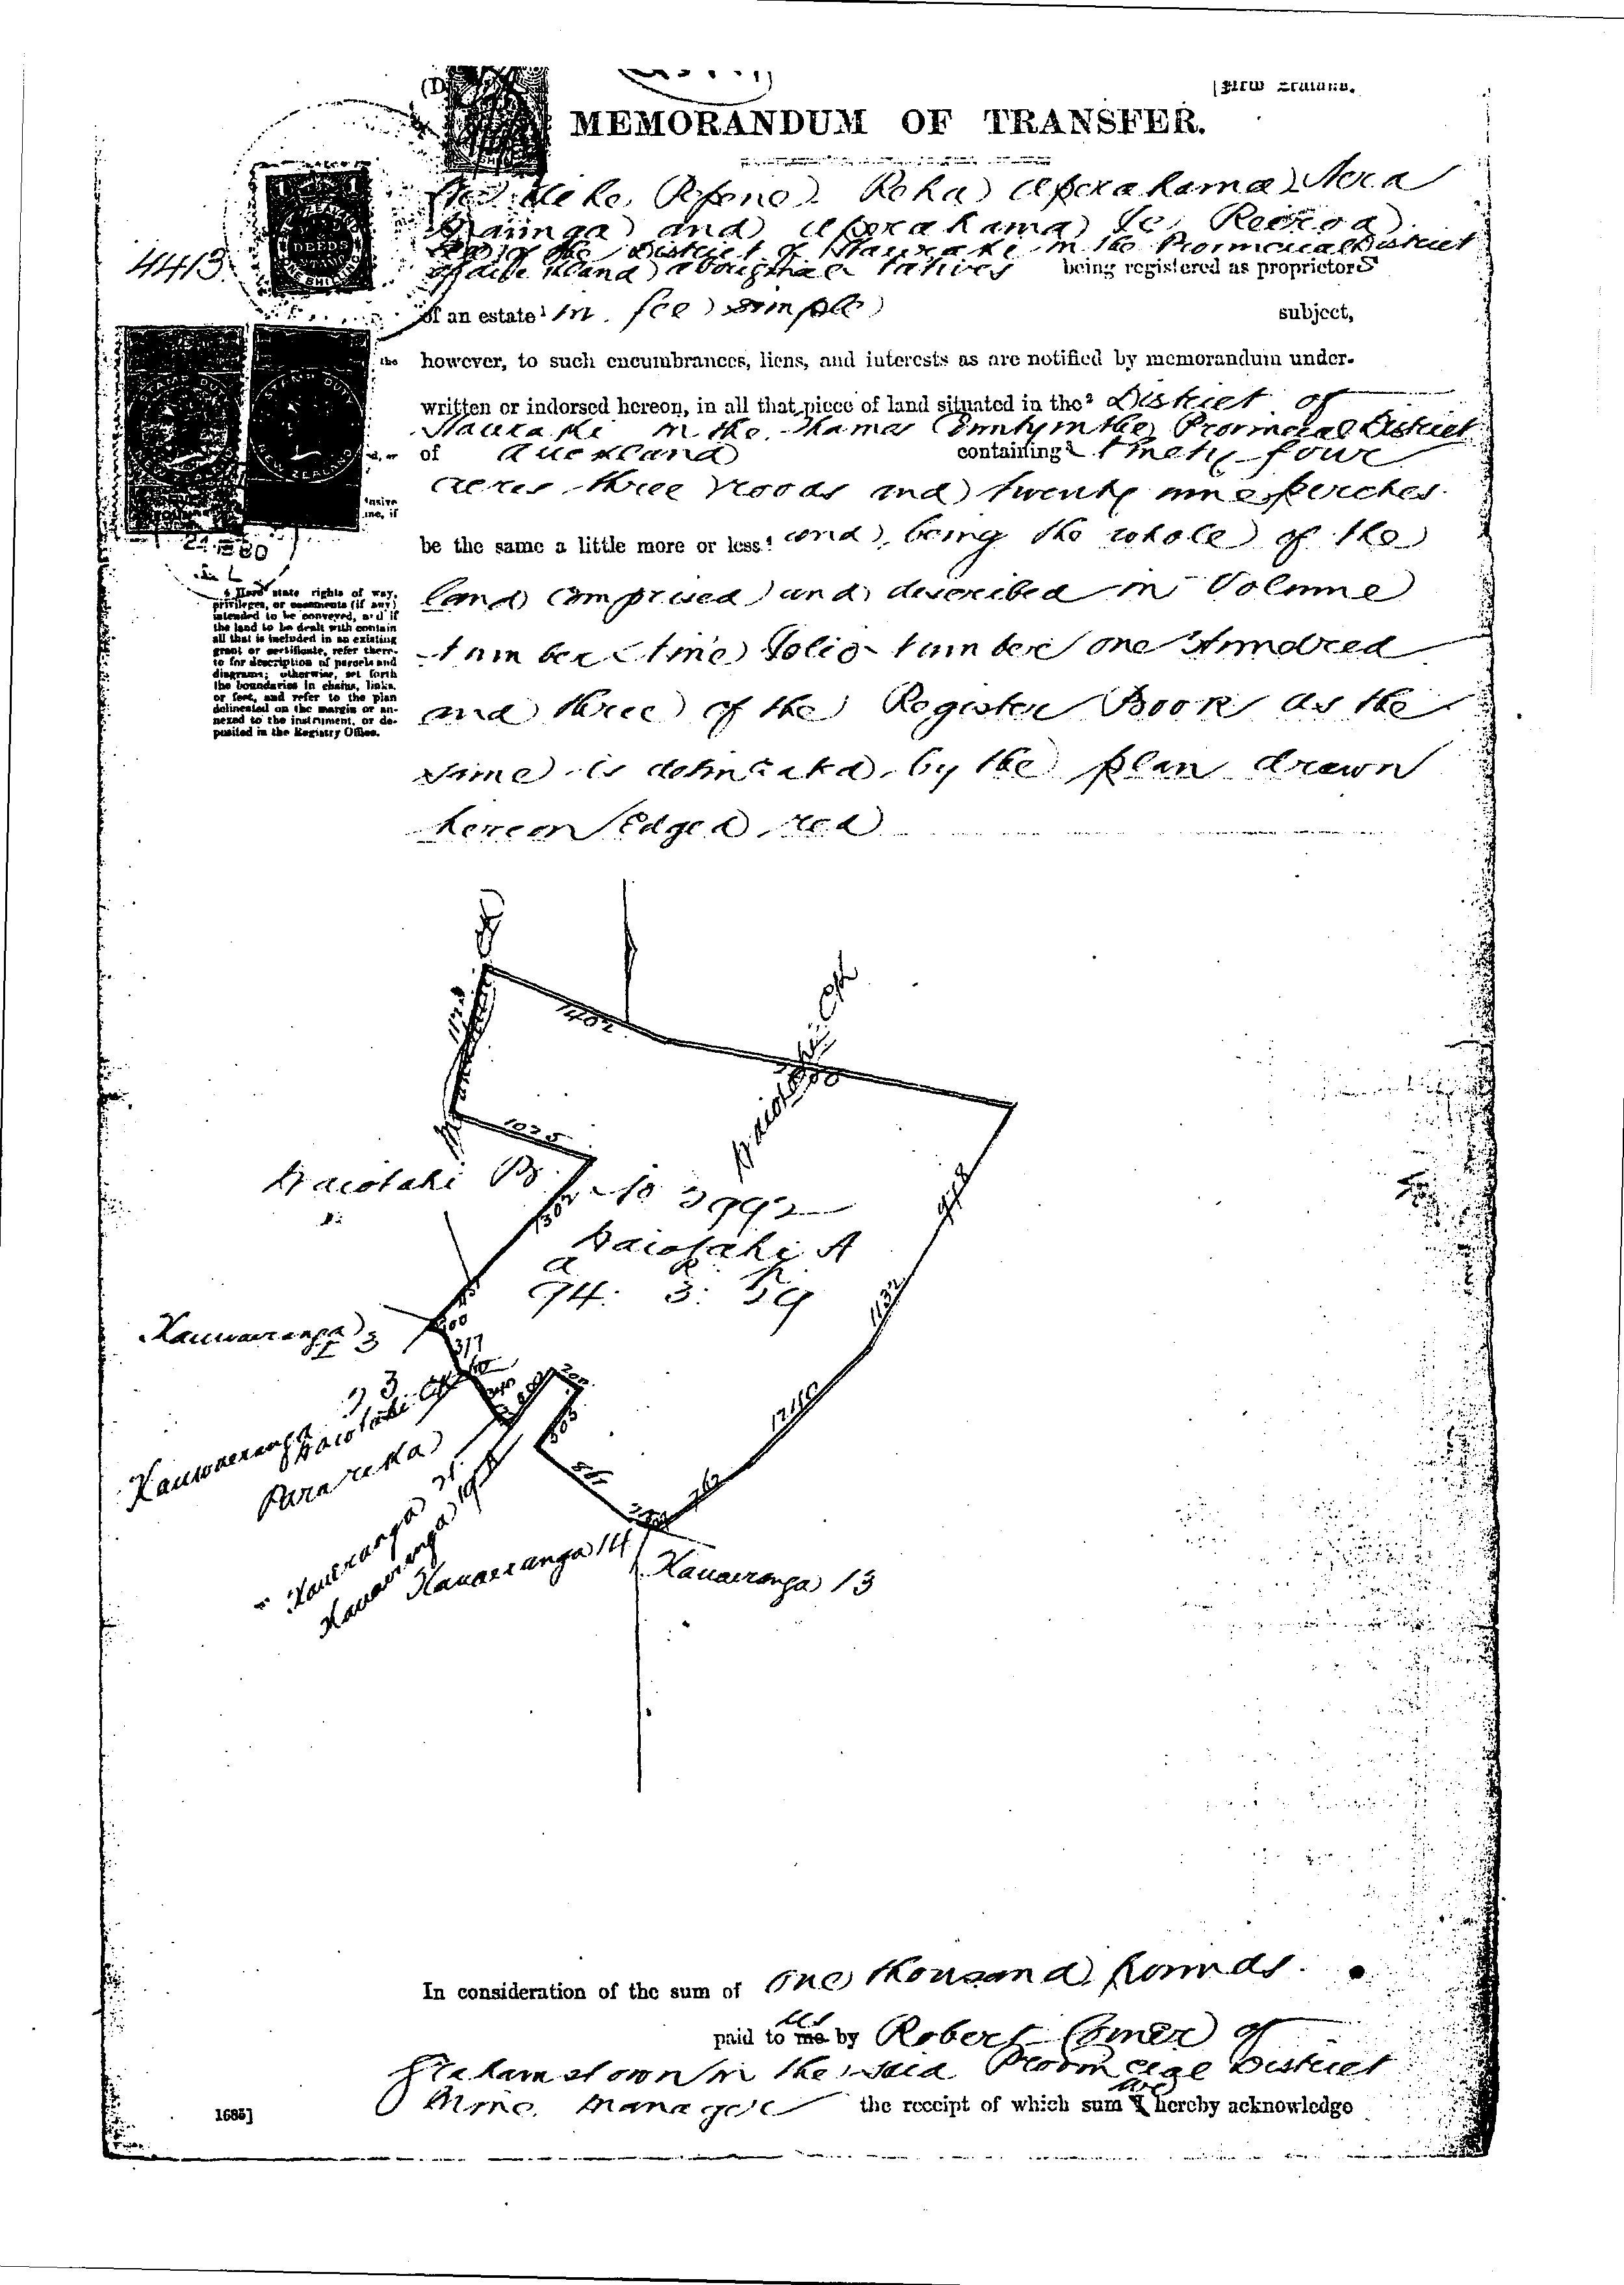 [New Zealand.
MEMORANDUM OF TRANSFER.
Reha Aperahama
and Aperahama Te Reiroa
of the District of Hauraki in the Provincial District
4413
of Auckland aboriginal Natives being registered as proprietors
of an estate¹ in fee simple subject,
the however, to such encumbrances, liens, and interests as are notified by memorandum under-
written or indorsed hereon, in all that piece of land situated in the² District of
Hauraki in the Thames County in the Provincial District
of Auckland containing³ Ninety four
acres three roods and twenty nine perches
be the same a little more or less⁴ and being the whole of the
21 80
4 Here state rights of way,
privileges, or easements (if any)
intended to be conveyed, and if
the land to be dealt with contain
all that is included in an existing
grant or certificate, refer there-
to for description of parcels and
diagrams; otherwise, set forth
the boundaries in chains, links,
or feet, and refer to the plan
delineated on the margin or an-
nexed to the instrument, or de-
posited in the Registry Office.
land comprised and described in Volume
Number Nine Folio Number one Hundred
and three of the Register Book as the
same is delineated by the plan drawn
hereon Edged red
1402
Waiotahi Ck
1025
978
Waiotahi B
No 3992
1302
Waiotahi A
a r p
94: 3: 29
1132
Kauwaeranga 3
317
Kauwaeranga
Waiotahi Ck
Parareka
1740
Kaueranga 21
Kauaeranga 19A
Kauaeranga 14
Kauaeranga 13
In consideration of the sum of One thousand pounds
us
paid to me by Robert Comer of
Grahamstown in the said Provincial District
we
Mine Manager the receipt of which sum I hereby acknowledge
1685]